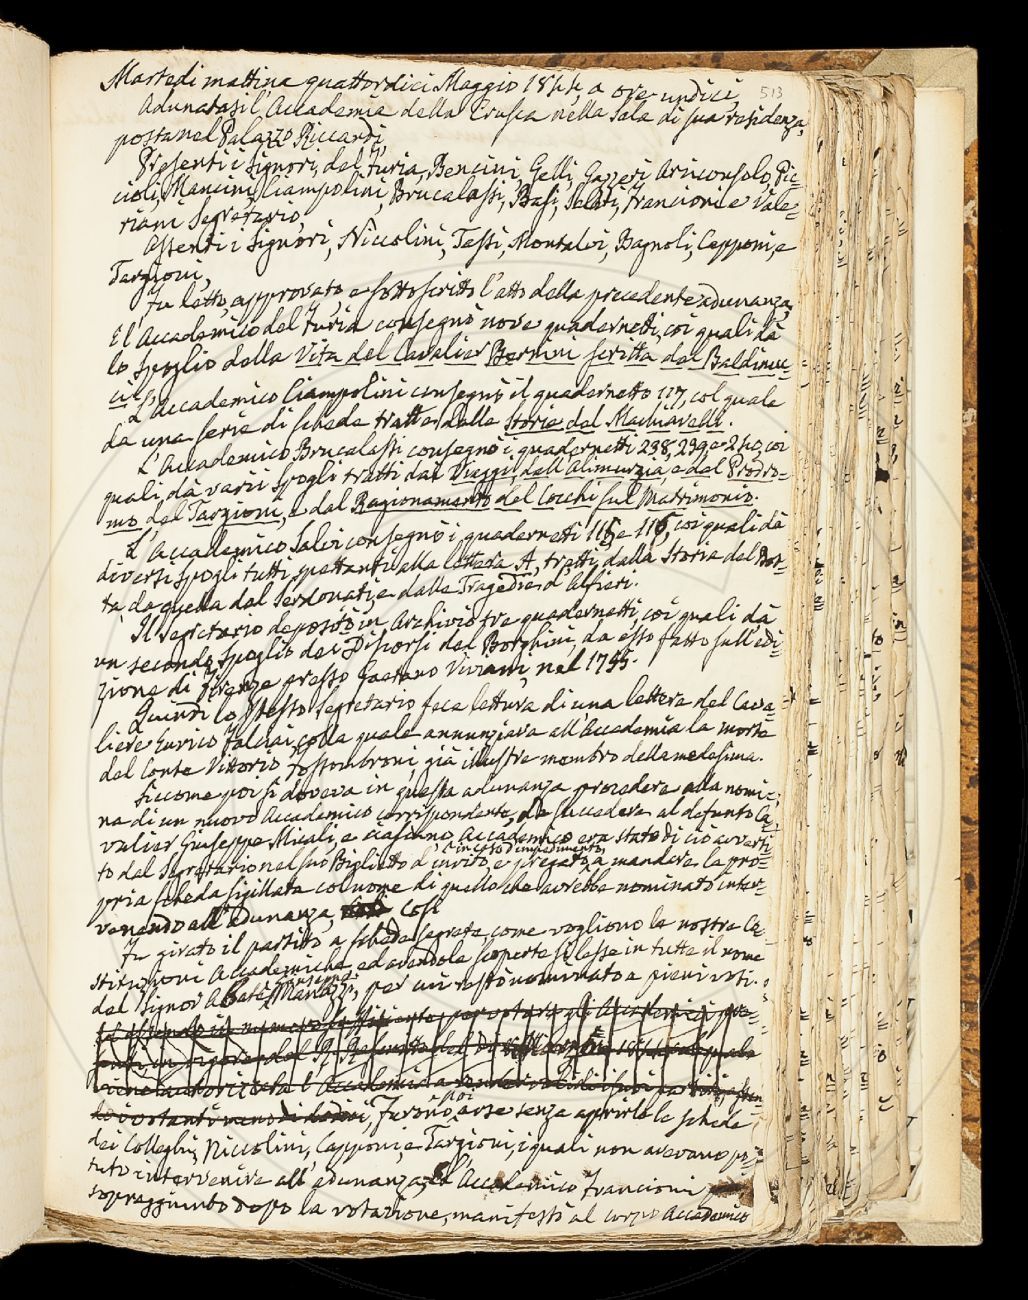 513
Martedì mattina quattordici Maggio 1844, a ore undici,
Adunatasi l'Accademia della Crusca nella Sala di sua residenza,
posta nel Palazzo Riccardi,
Presenti i Signori, del Furia, Bencini, Gelli, Gazzeri Arciconsolo, Pic-
cioli, Mancini, Ciampolini, Brucalassi, Basi, Salvi, Francioni e Vale-
riani Segretario,
Assenti i Signori, Niccolini, Tassi, Montalvi, Bagnoli, Capponi, e
Targioni,
Fu letto, approvato, e sottoscritto l'atto della precedente adunanza,
E l'Accademico del Furia consegnò nove quadernetti, coi quali dà
lo spoglio della Vita del Cavalier Bernini scritta dal Baldinuc-
ci.
L'Accademico Ciampolini consegnò il quadernetto 117, col quale
dà una serie di schede tratte dalle Storie del Machiavelli.
L'Accademico Brucalassi consegnò i quadernetti 238, 239 e 240, coi
quali dà varii spogli tratti dai Viaggi, dall'Alimurgia, e dal Prodro-
mo del Targioni, e dal Ragionamento del Cocchi sul Matrimonio.
L'Accademico Salvi consegnò i quadernetti 115 e 116, coi quali dà
diversi spogli tutti spettanti alla lettera A, tratti dalla Storia del Bot-
ta da quella del Serdonati, e dalle Tragedie d'Alfieri.
Il Segretario depositò in Archivio tre quadernetti, coi quali dà
un secondo spoglio dei Discorsi del Borghini, da esso fatto sull'edi-
zione di Firenze presso Gaetano Viviani, nel 1755.
Quindi lo stesso Segretario fece lettura di una lettera del Cava-
liere Enrico Falciai, colla quale annunziava all'Accademia la morte
del Conte Vittorio Fossombroni, già illustre membro della medesima.
Siccome poi si doveva in questa adunanza procedere alla nomi-
na di un nuovo Accademico corrispondente, da succedere al defunto Ca-
valier Giuseppe Micali, e ciascuno Accademico era stato di ciò avverti-
to dal Segretario nel suo Biglietto d'invito, e pregato, in caso d'impedimento, a mandare la pro-
pria scheda sigillata col nome di quello che avrebbe nominato inter-
venendo all'adunanza, così
Fu girato il partito a scheda segreta, come vogliono le nostre Co-
stituzioni Accademiche, ed avendole scoperte si lesse in tutte il nome
del Signor Abate Manuzzi, per cui restò nominato a pieni voti.
Furono poi arse senza aprirle le schede
dei Colleghi, Niccolini, Capponi, e Targioni, i quali non avevano po-
tuto intervenire all'adunanza, e l'Accademico Francioni
sopraggiunto dopo la votazione, manifestò al corpo Accademico